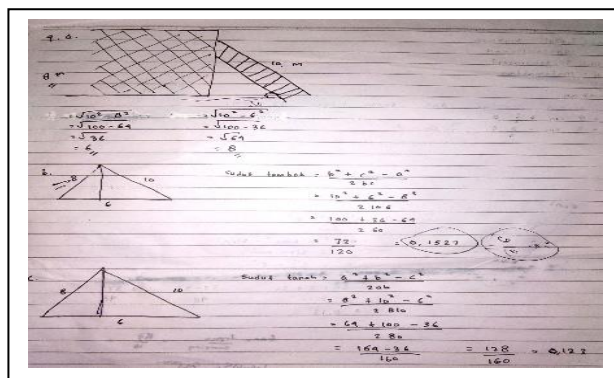 9. a.
10 m
8 m
= √10² - 8²
= √10² - 6²
= √100 - 64
= √100 - 36
= √36
= √64
= 6
= 8
b.
8
10
6
sudut tembok = b² + c² - a² / 2bc
= 10² + 6² - 8² / 2 10 6
= 100 + 36 - 64 / 2 60
= 72 / 120 = 0,1527
c.
8
10
6
sudut tanah = a² + b² - c² / 2ab
= 8² + 10² - 6² / 2 8 10
= 64 + 100 - 36 / 2 80
= 164 - 36 / 160 = 128 / 160 = 0,123